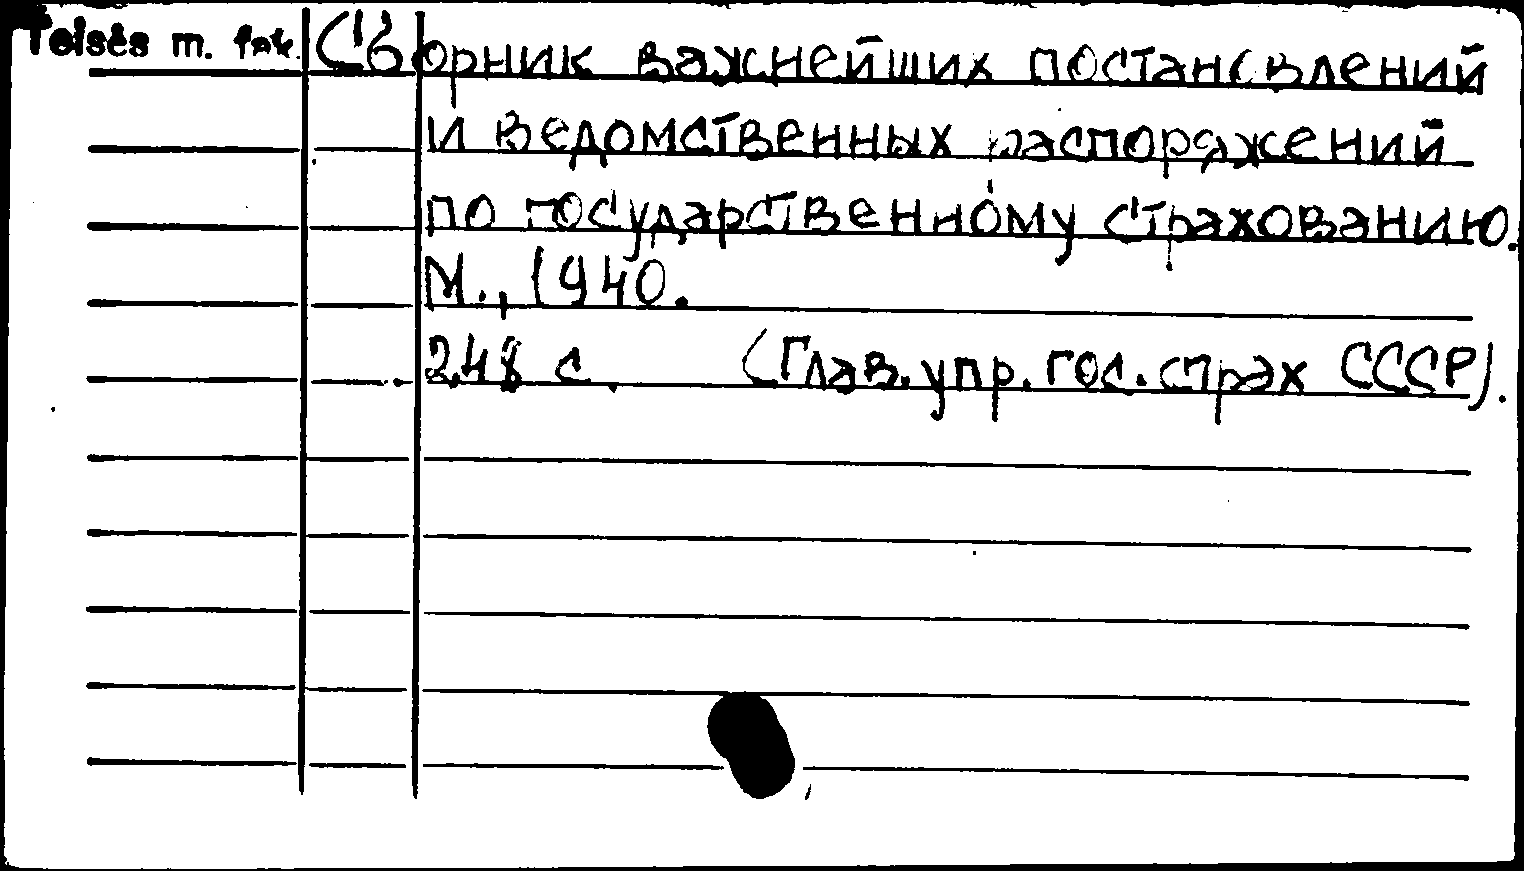 Teisės m. fak. Сборник важнейших постановлений
и ведомственных распоряжений
по государственному страхованию.
М., 1940.
248 с. (Глав. упр. гос. страх СССР).